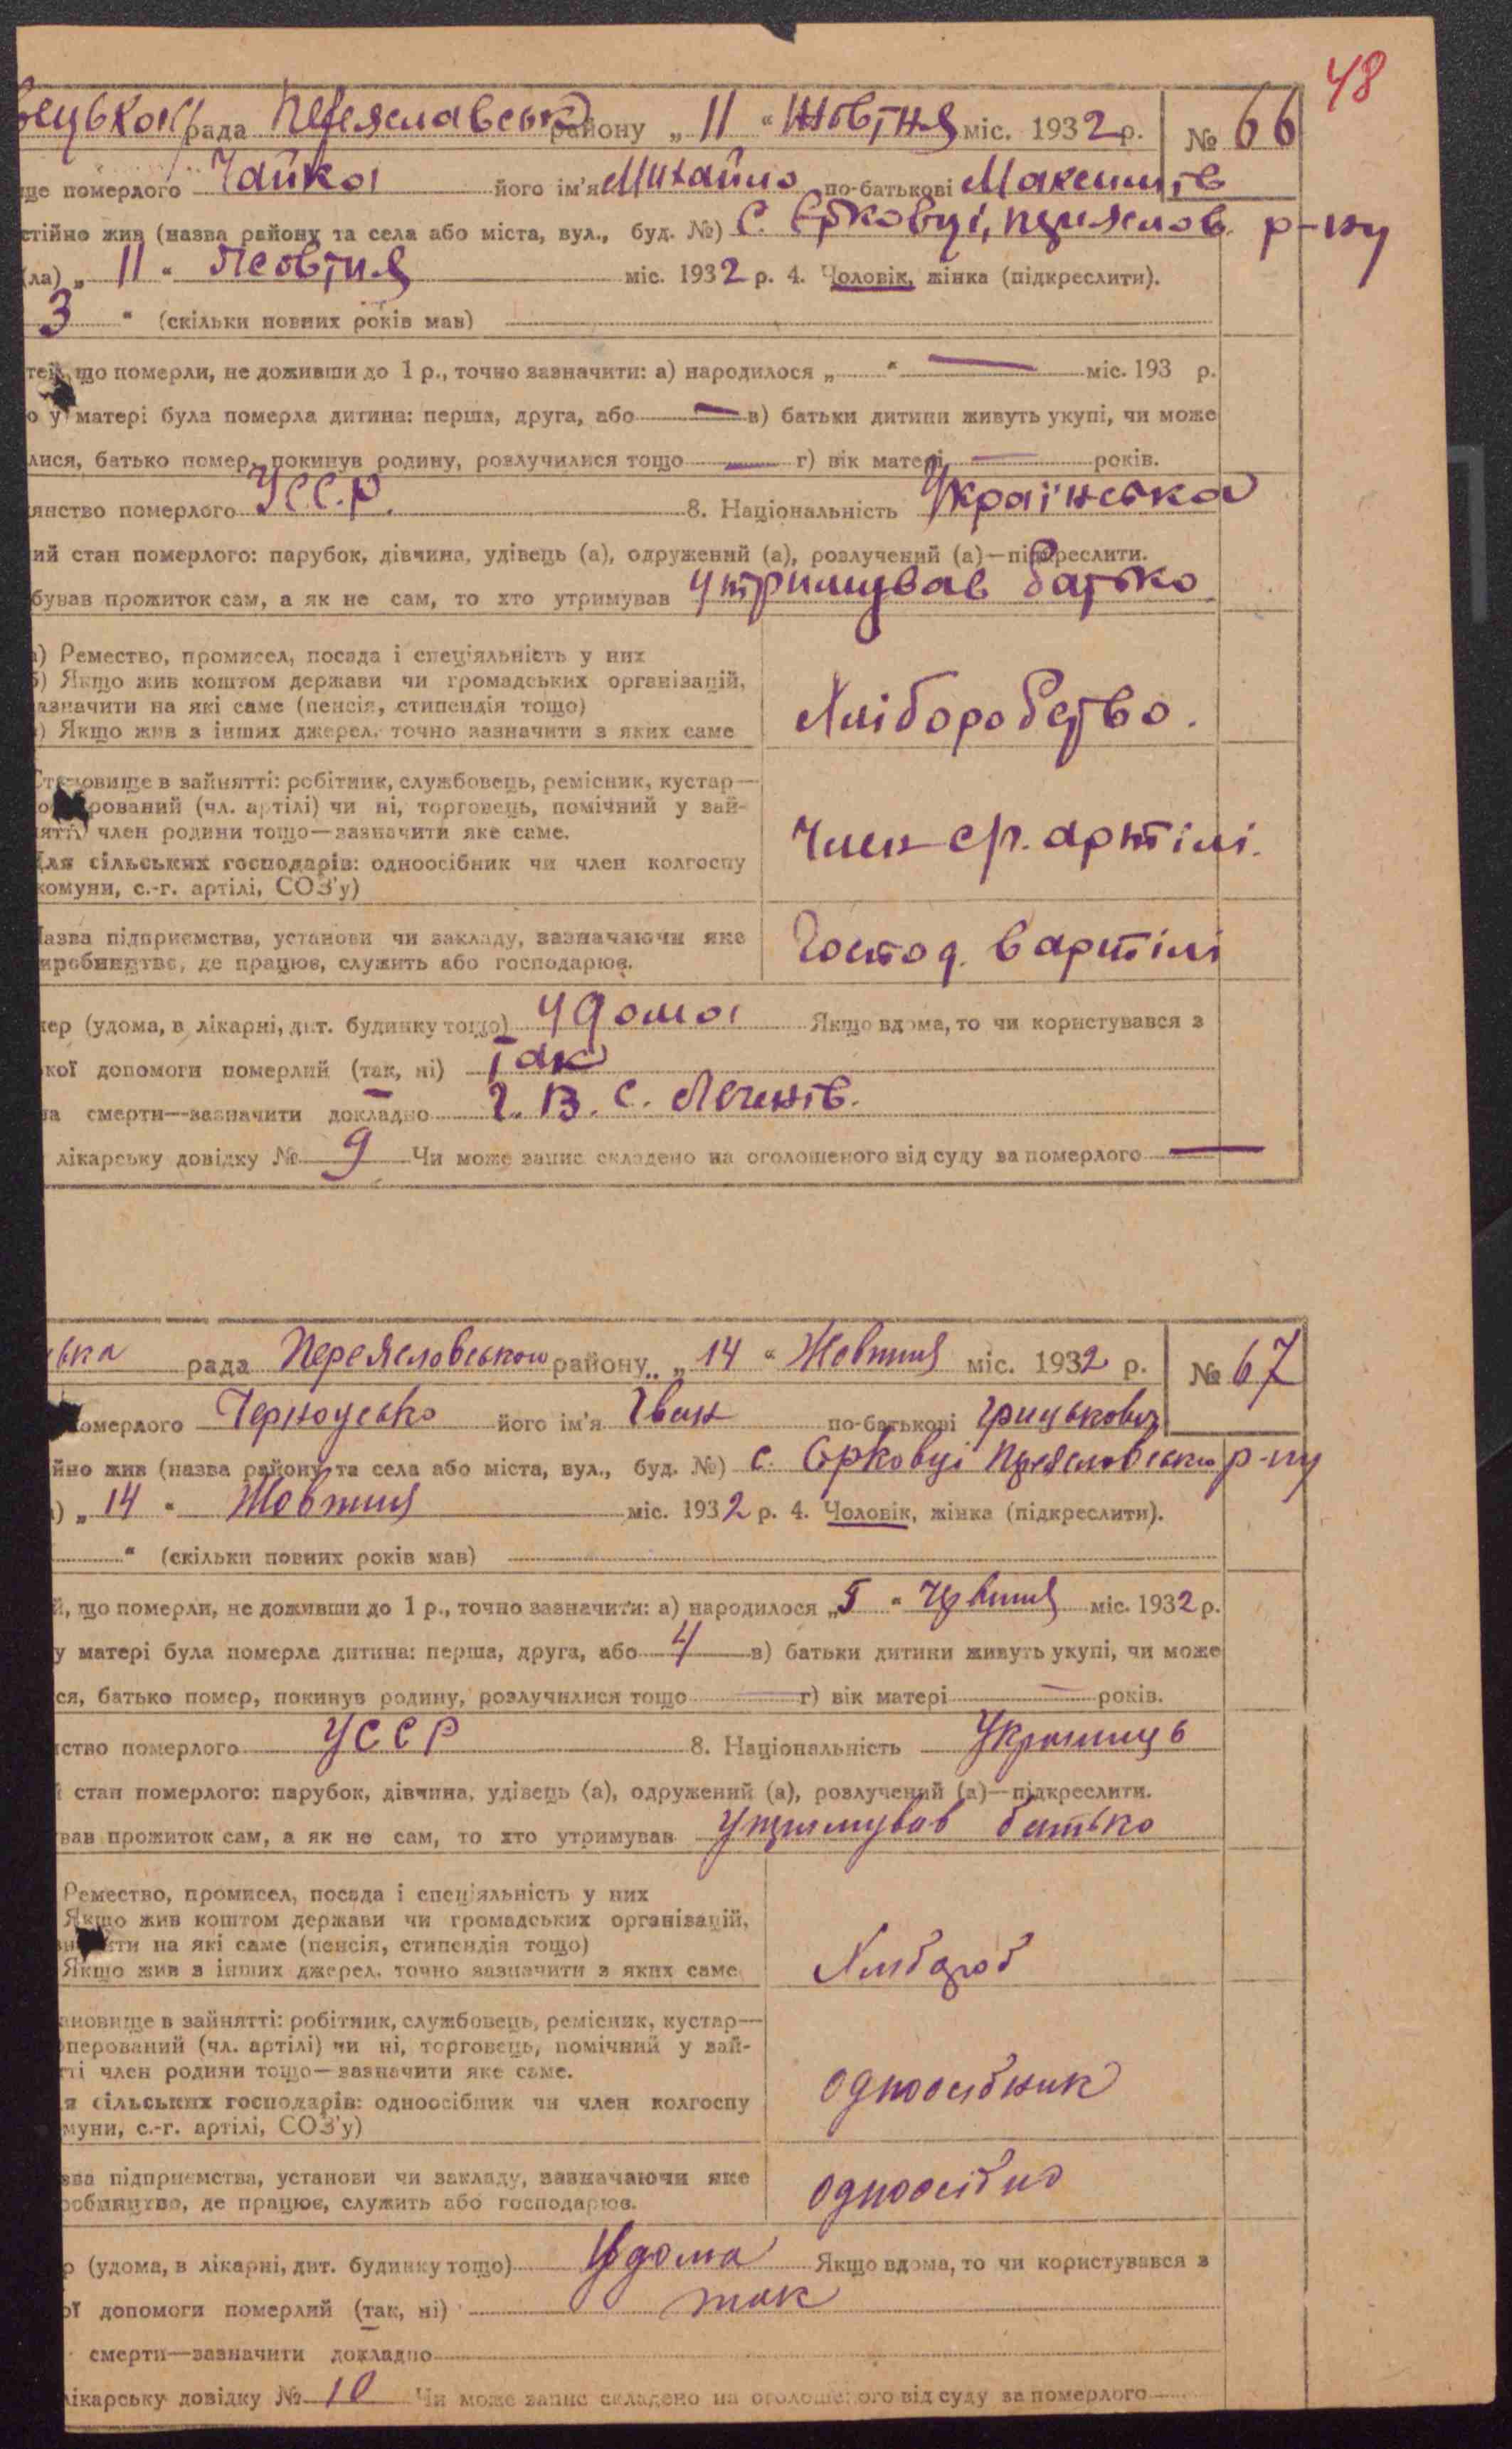 48
рада Переяславськ району „ 11 “ Жовтня міс. 1932 р. № 66
ще померлого Чайка його ім'я Михайло по-батькові Максимів
стійно жив (назва району та села або міста, вул., буд. №) С. Єрковці, переяслов. р-ну
(ла) „ 11 “ Жовтня міс. 1932 р. 4. Чоловік, жінка (підкреслити).
3 “ (скільки повних років мав)
тей, що померли, не доживши до 1 р., точно зазначити: а) народилося „ “ — міс. 193 р.
о у матері була померла дитина: перша, друга, або — в) батьки дитини живуть укупі, чи може
лися, батько помер, покинув родину, розлучилися тощо — г) вік матері — років.
янство померлого УССР. 8. Національність Українська
ий стан померлого: парубок, дівчина, удівець (а), одружений (а), розлучений (а)—підкреслити.
бував прожиток сам, а як не сам, то хто утримував утримував батько
а) Ремество, промисел, посада і спеціяльність у них
б) Якщо жив коштом держави чи громадських організацій,
азначити на які саме (пенсія, стипендія тощо)
) Якщо жив з інших джерел, точно зазначити з яких саме
Хліборобство.
Становище в зайнятті: робітник, службовець, ремісник, кустар—
рований (чл. артілі) чи ні, торговець, помічний у зай-
нятті член родини тощо—зазначити яке саме.
Для сільських господарів: одноосібник чи член колгоспу
комуни, с.-г. артілі, СОЗ'у)
Член ср. артілі.
Назва підприємства, установи чи закладу, зазначаючи яке
иробництво, де працює, служить або господарює.
Господ. в артілі
мер (удома, в лікарні, дит. будинку тощо) удома Якщо вдома, то чи користувався з
кої допомоги померлий (так, ні) Так
на смерти—зазначити докладно Г. В. С. Легенів.
лікарську довідку № 9 Чи може запис складено на оголошеного від суду за померлого —
ька рада Переясловського району „ 14 “ Жовтня міс. 1932 р. № 67
померлого Черноусько його ім'я Іван по-батькові Грицькович
ійно жив (назва району та села або міста, вул., буд. №) с. Єрковці Переясловськ р-ну
) „ 14 “ Жовтня міс. 1932 р. 4. Чоловік, жінка (підкреслити).
“ (скільки повних років мав)
й, що померли, не доживши до 1 р., точно зазначити: а) народилося „ 5 “ Червня міс. 1932 р.
у матері була померла дитина: перша, друга, або 4 в) батьки дитини живуть укупі, чи може
ся, батько помер, покинув родину, розлучилися тощо — г) вік матері — років.
нство померлого УССР 8. Національність Українець
й стан померлого: парубок, дівчина, удівець (а), одружений (а), розлучений (а)—підкреслити.
вав прожиток сам, а як не сам, то хто утримував утримував батько
Ремество, промисел, посада і спеціяльність у них
Якщо жив коштом держави чи громадських організацій,
значити на які саме (пенсія, стипендія тощо)
Якщо жив з інших джерел, точно зазначити з яких саме
Хлібороб
ановище в зайнятті: робітник, службовець, ремісник, кустар—
оперований (чл. артілі) чи ні, торговець, помічний у зай-
тті член родини тощо—зазначити яке саме.
я сільських господарів: одноосібник чи член колгоспу
муни, с.-г. артілі, СОЗ'у)
одноосібник
зва підприємства, установи чи закладу, зазначаючи яке
обництво, де працює, служить або господарює.
одноосібно
р (удома, в лікарні, дит. будинку тощо) Удома Якщо вдома, то чи користувався з
ої допомоги померлий (так, ні) так
смерти—зазначити докладно
лікарську довідку № 10 Чи може запис складено на оголошеного від суду за померлого